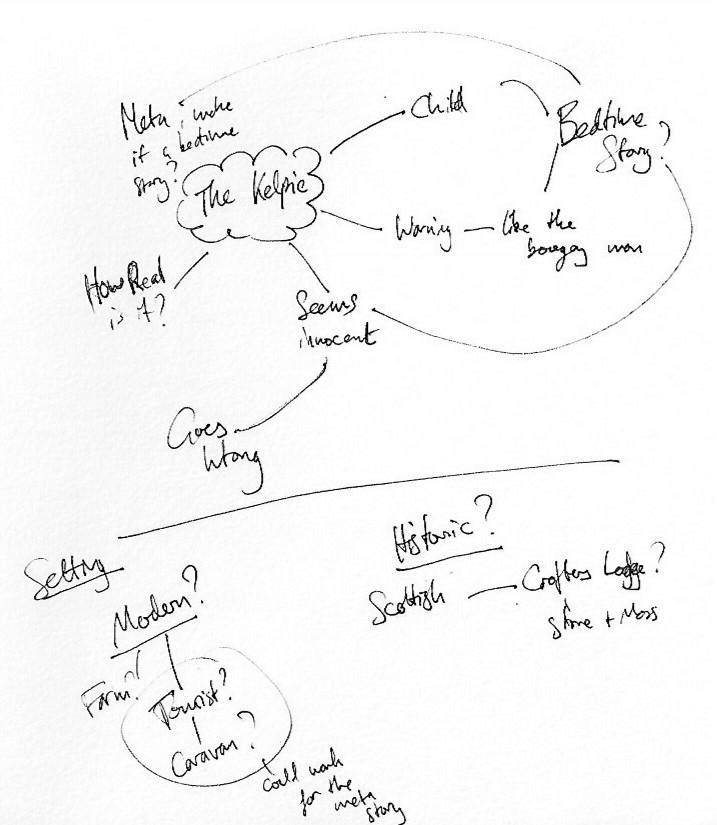 Meta, make
it a bedtime
story?
The Kelpie
Child
Bedtime
Story?
Warning
like the
boogey man
How Real
is it?
Seems
innocent
Goes
Wrong
Setting
Modern?
Farm?
Tourist?
Caravan?
could work
for the
meta
story
Historic?
Scottish
Crofters Lodge?
stone + Moss